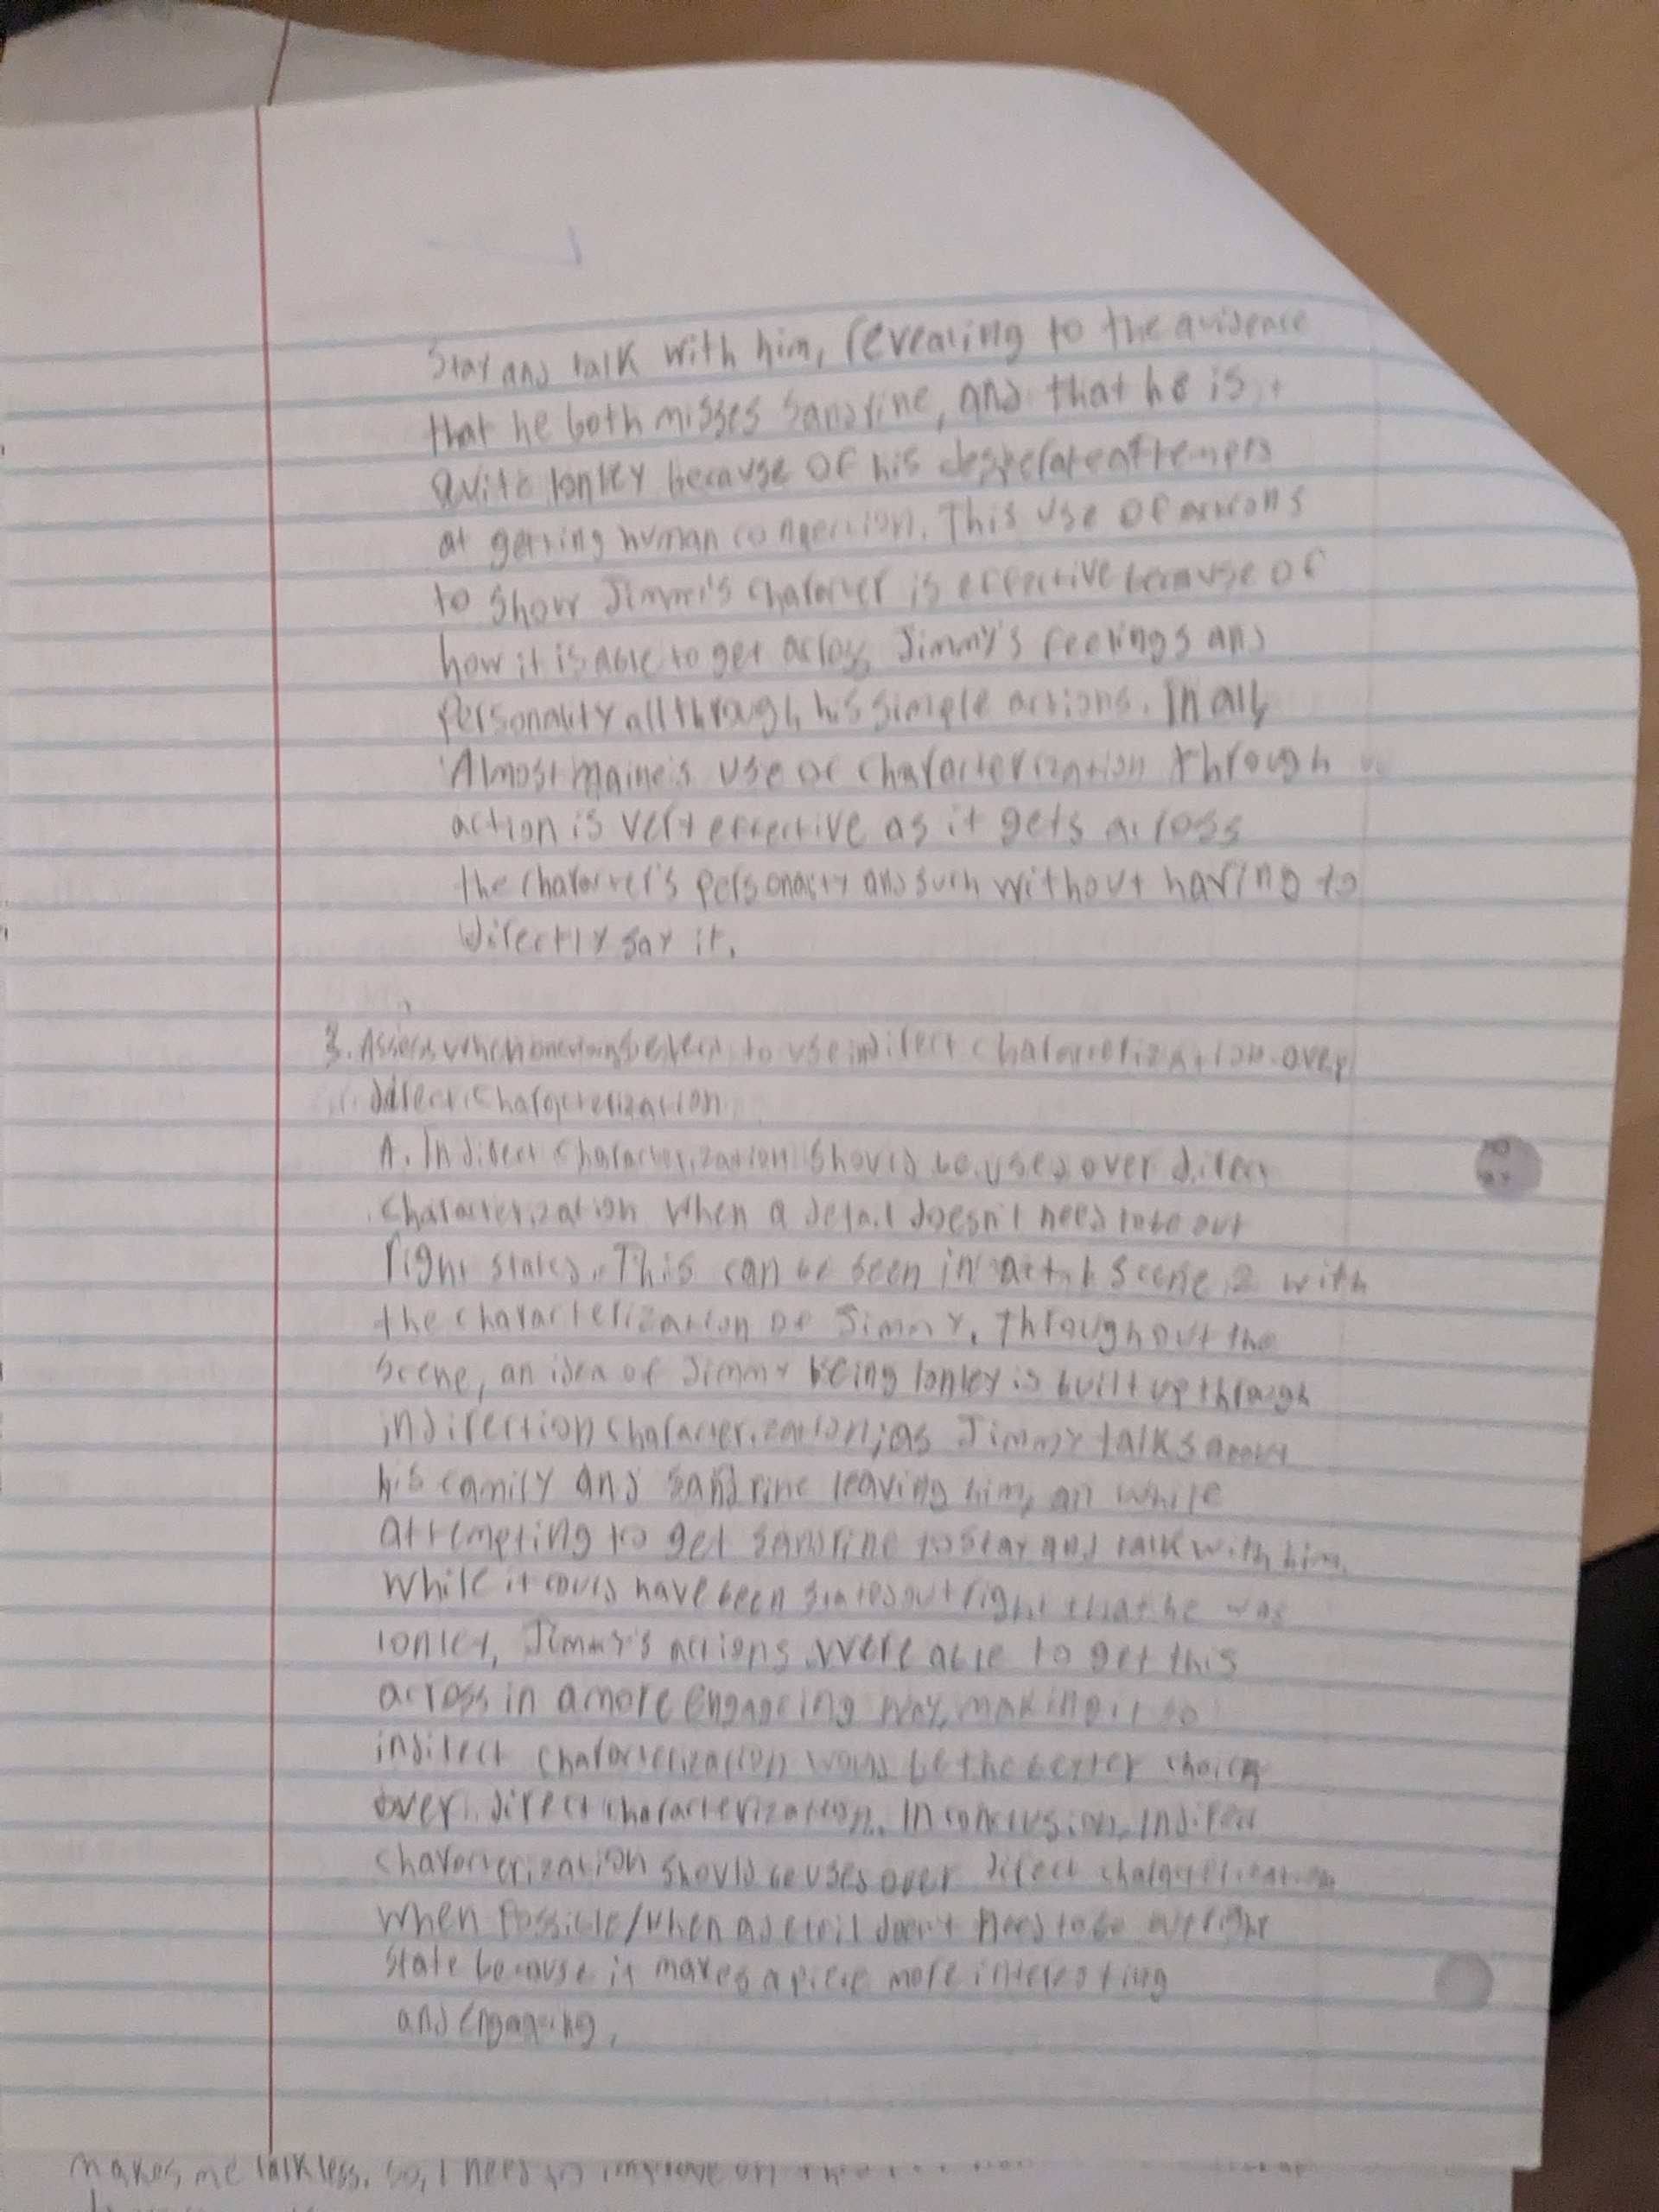 Stay and talk with him, revealing to the audience
that he both misses Sandrine, and that he is
quite lonley because of his desperate attempts
at getting human connection. This use of actions
to show Jimmy's character is effective because of
how it is able to get across Jimmy's feelings and
Personality all through his simple actions. In all,
Almost Maine's use of characterization through
action is very effective as it gets across
the character's personality and such without having to
directly say it.
3. Assess when to use indirect characterization over
direct characterization.
A. Indirect characterization should be used over direct
characterization when a detail doesn't need to be out
right stated. This can be seen in act 1 scene 2 with
the characterization of Jimmy. Throughout the
scene, an idea of Jimmy being lonley is built up through
indirection characterization; as Jimmy talks about
his family and Sandrine leaving him, all while
attempting to get Sandrine to stay and talk with him.
While it could have been stated outright that he was
lonley, Jimmy's actions were able to get this
across in a more engageing way, making it so
indirect characterization would be the better choice
over direct characterization. In conclusion, indirect
characterization should be used over direct characterization
when possible/when a detail doesn't need to be outright
state because it makes a piece more interesting
and engageing.
makes me talk less. So, I need to improve on